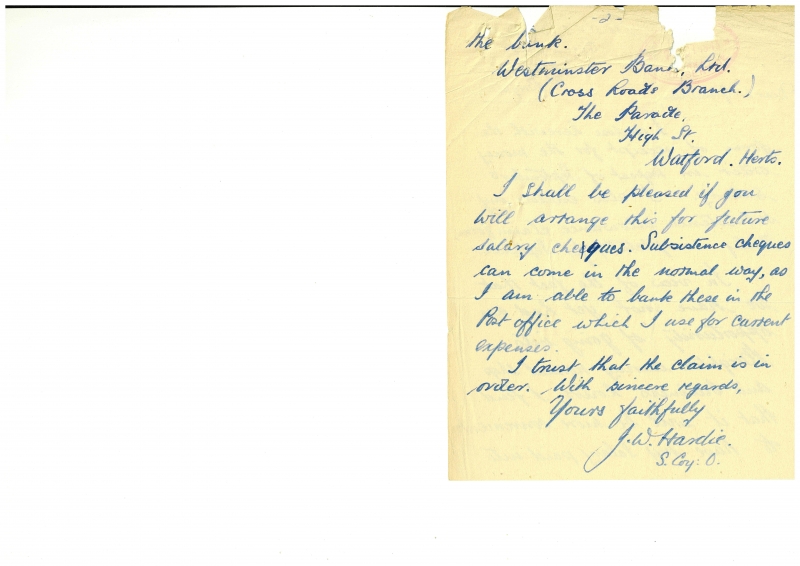 -2-
the bank.
Westminster Bank, Ltd.
(Cross Roads Branch.)
The Parade,
High St.
Watford. Herts.
I shall be pleased if you
will arrange this for future
salary cheques. Subsistence cheques
can come in the normal way, as
I am able to bank these in the
Post office which I use for current
expenses.
I trust that the claim is in
order. With sincere regards,
Yours faithfully
J.W. Hardie.
S. Coy. O.